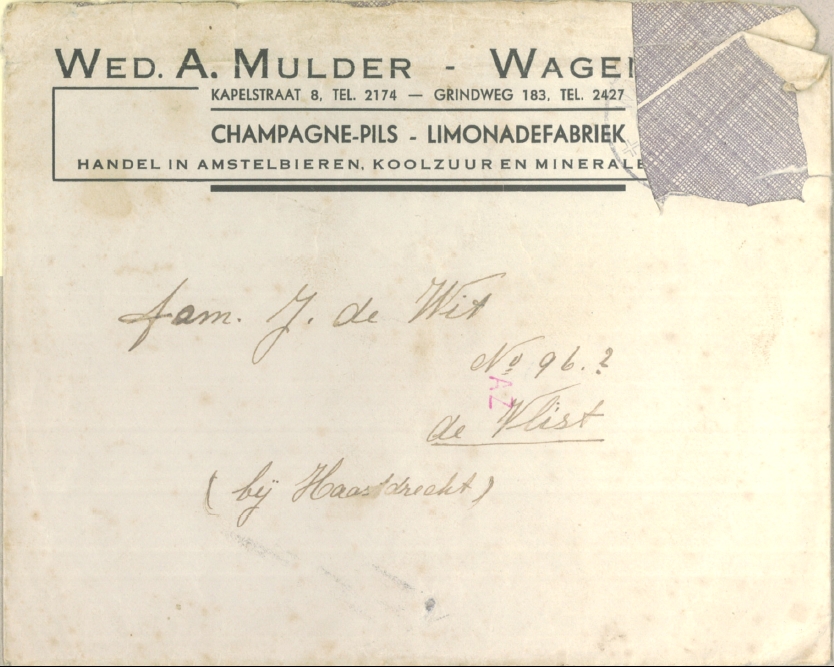 WED. A. MULDER - WAGEN
KAPELSTRAAT 8, TEL. 2174 — GRINDWEG 183, TEL. 2427
CHAMPAGNE-PILS - LIMONADEFABRIEK
HANDEL IN AMSTELBIEREN, KOOLZUUR EN MINERALE
fam. J. de Wit
No 96.?
AZ
de Vlist
(bij Haastdrecht)